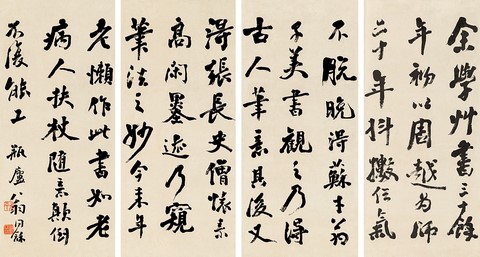 余學艸書三十餘
年初以周越為師
二十年抖擻俗氣
不脫晚得蘇才翁
子美書觀之乃得
古人筆意其後又
得張長史僧懷素
高閑墨迹乃窺
筆法之妙今来年
老懶作此書如老
病人扶杖隨意顛倒
不復能工 瓶廬翁同龢